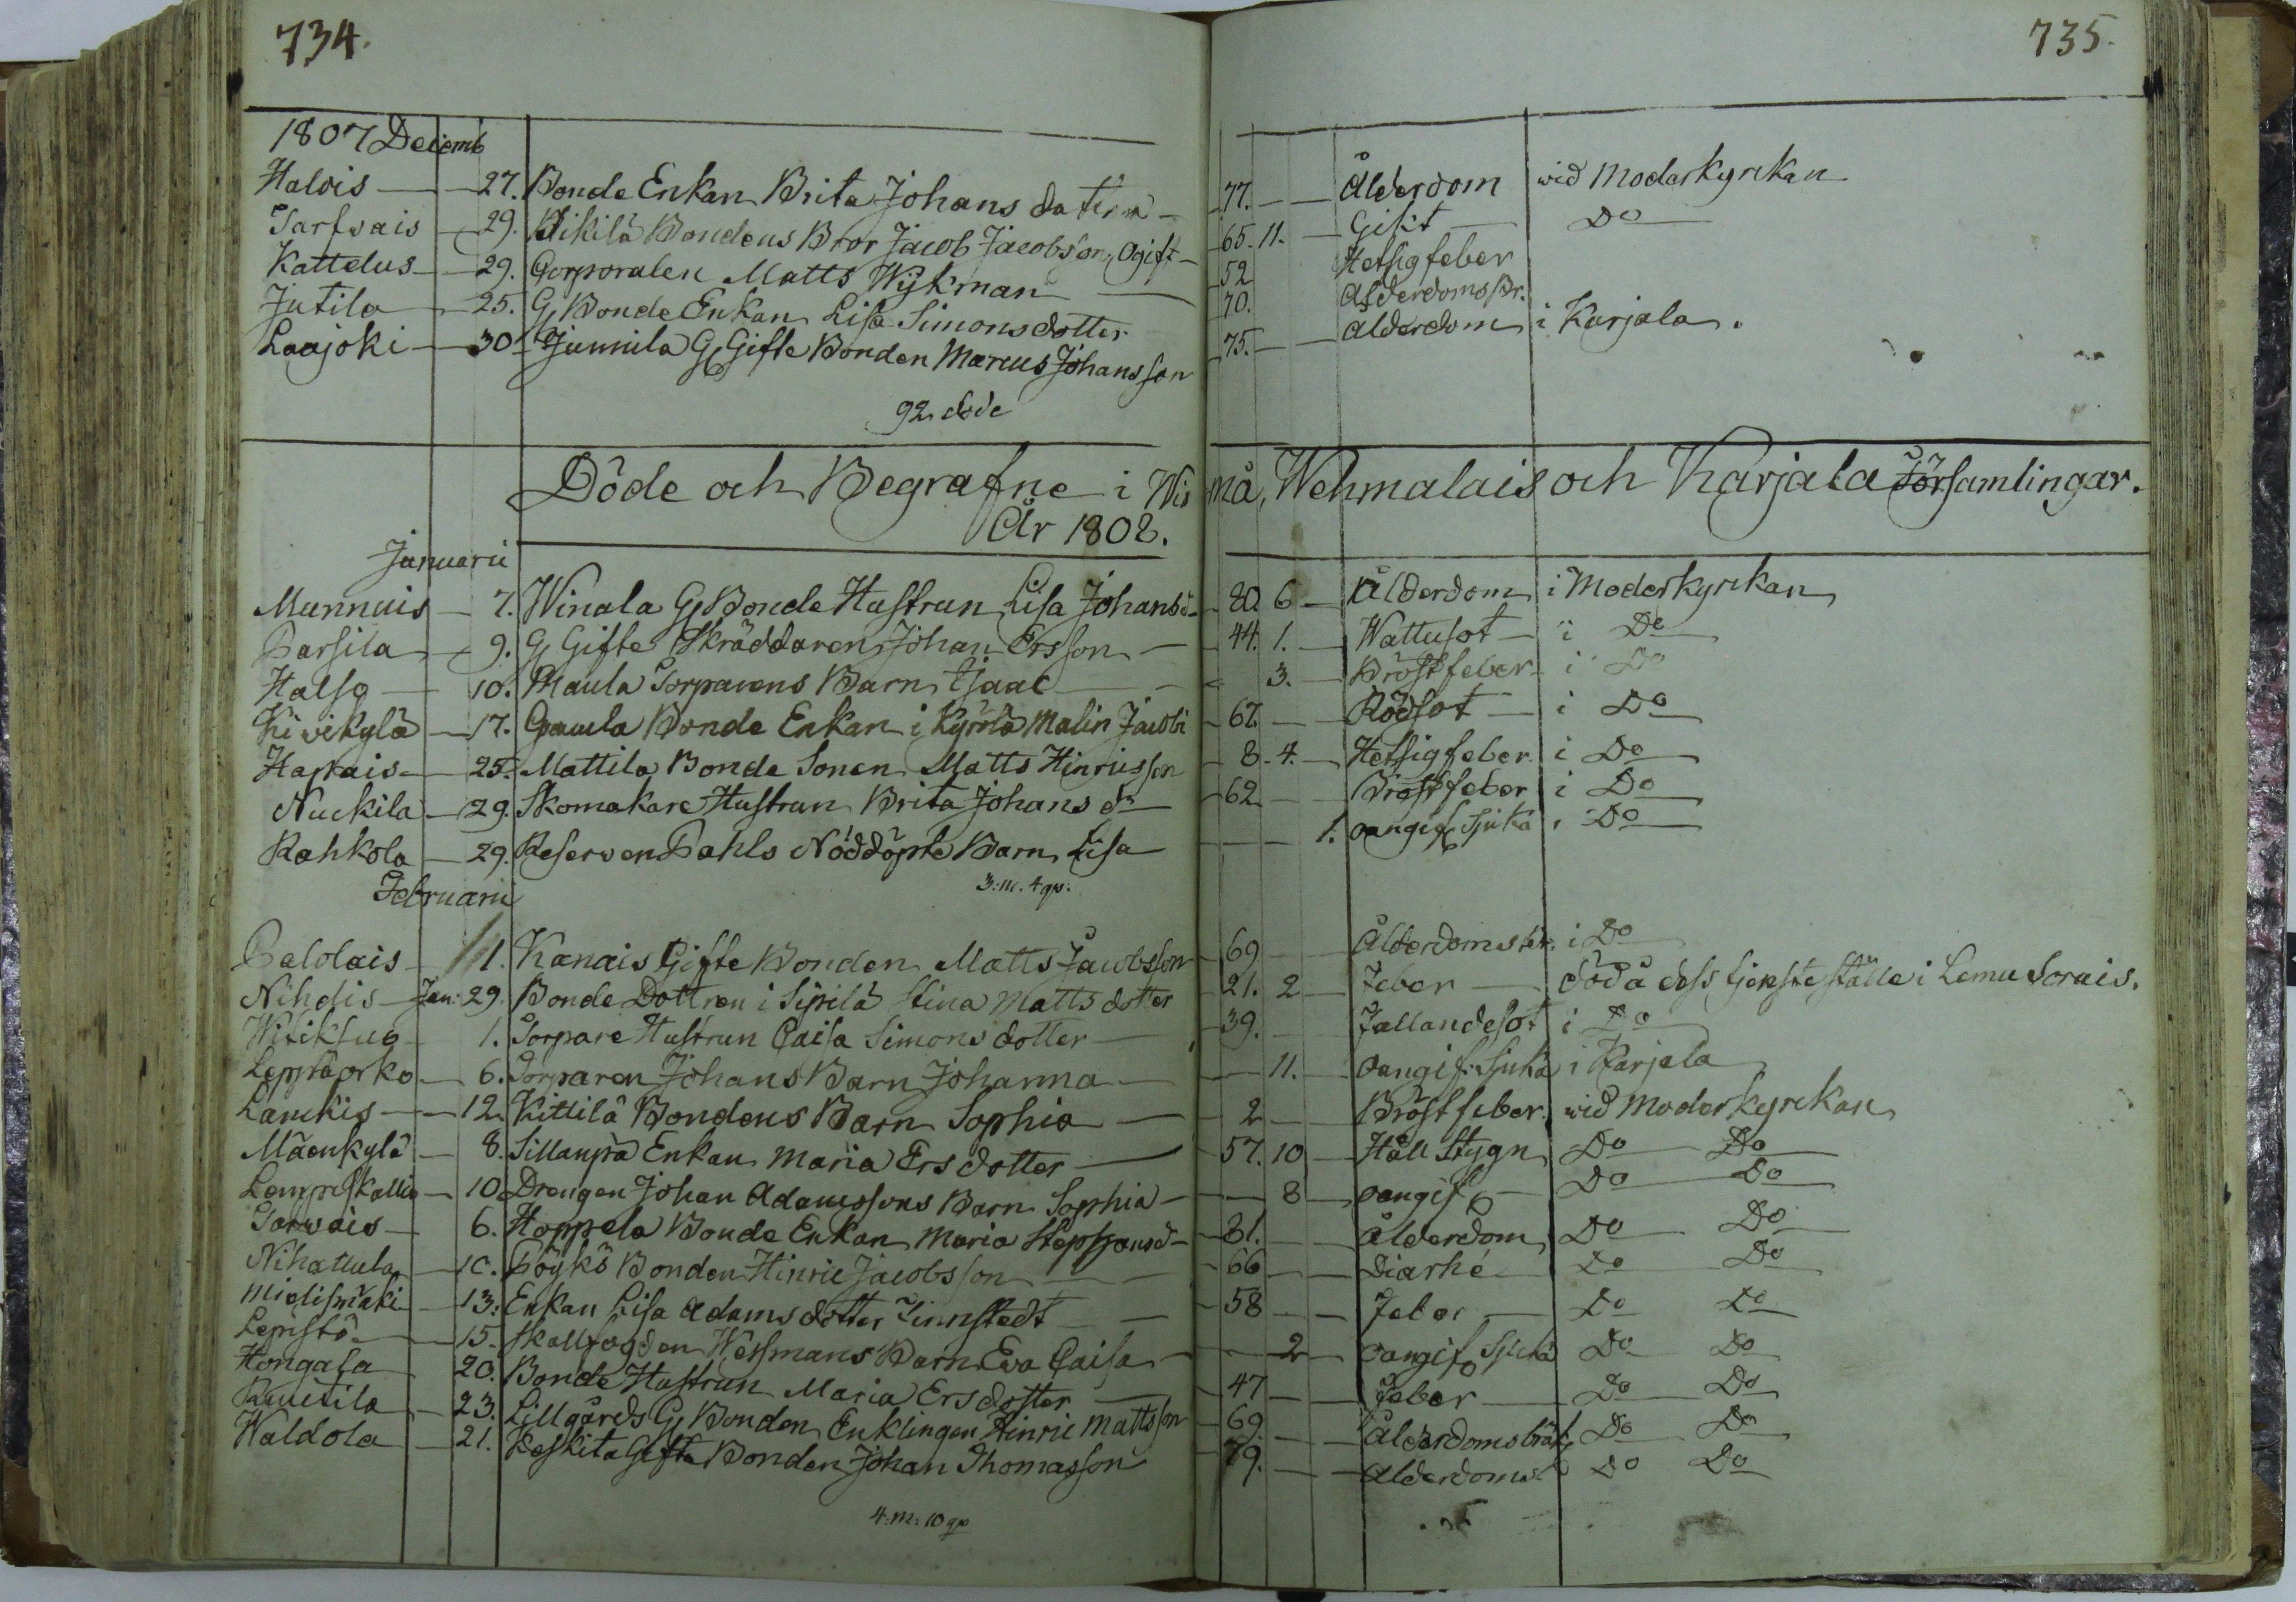 734.
735.
1807 Decemb
Halvis 27. Bonde Enkan Brita Johans 77. Ålderdom wid Moderkyrkan
Tarfvais 29. Bondens Bror Jacob Jacobsson, Ogift 65. 11. Gikt Do
Kattelus 29. Corporalen Matts Wijkman 52 Hetsigfeber
Jutila 25. G. Bonde Enkan Lisa Simonsdotter 70. Ålderdoms Br.
Laajoki 30 Junnila G. Gifte Bonden Marcus Johansson 75. Ålderdom i Karjala.
92 döde
Döde och Begrafne i Wirmå, Wehmalais och Karjala Församlingar.
År 1808.
Januarii
Munnuis 7. Winala G. Bonde Hustrun Lisa Johansd. 80. 6 Ålderdom i Moderkyrkan
Parsila 9. G. Gifte Skräddaren Johan Ersson 44. 1. Wattusot i Do
Halsg 10. Maula Torparens Barn Isaac 3. Bröstfeber i Do
Kivikylä 17. Gamla Bonde Enkan i Kyrölä Malin Jacobi 67. Rödsot i Do
Hapais 25. Mattila Bonde Sonen Matts Hinricsson 8. 4. Hetsigfeber i Do
Nuckila 29. Skomakare Hustrun Brita Johans dr 62 Bröstfeber i Do
Kahkola 29. Reserven Dahls Nöddöpte Barn Lisa 1. oangif. Sjuka i Do
3:m. 4 qv:
Februarii
Palolais 1. Kanais Gifte Bonden Matts Jacobsson 69 Ålderdoms br. i Do
Nihdis Jan: 29. Bonde Dottren i Sipilä Stina Matts dotter 21. 2 Feber död å dess tjenste ställe i Lemu Sorais.
1. Torpare Hustrun Caisa Simons dotter 39. Fallandesot i Do
Leppäorko 6. Torparen Johans Barn Johanna 11. oangif. Sjuka i Karjala
Lamkis 12. Kittilä Bondens Barn Sophia 2 Bröstfeber wid Moderkyrkan
Mäenkylä 8. Sillanpä Enkan Maria Ers dotter 57. 10 Håll Stygn Do Do
Lempiskallio 10 Drengen Johan Adamssons Barn Sophia 8 oangif. Do Do
Tarvais 6. Hoppela Bonde Enkan Maria Stephansd. 81. Ålderdom Do Do
Nihattula 10. Pöykö Bonden Hinric Jacobsson 66 Diarhé Do Do
Mielismäki 13. Enkan Lisa Adams dotter Zinnstedt 58 Feber Do Do
Lepistö 15. Skallfogden Wessmans Barn Eva Caisa 2 oangif. Sjuka Do Do
Hongasa 20. Bonde Hustrun Maria Ersdotter 47 Feber Do Do
Ruutila 23. Lillgårds G. Bonden Enklingen Hinric Mattsson 69. Ålderdomsbräk. Do Do
Waldola 21. Keskita Gifte Bonden Johan Thomasson 79. Ålderdoms Do Do
4:m: 10 qv